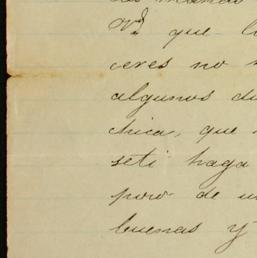 V. que l
veres no
algunos d
chica, que
seti haga
poro de u
buenas y